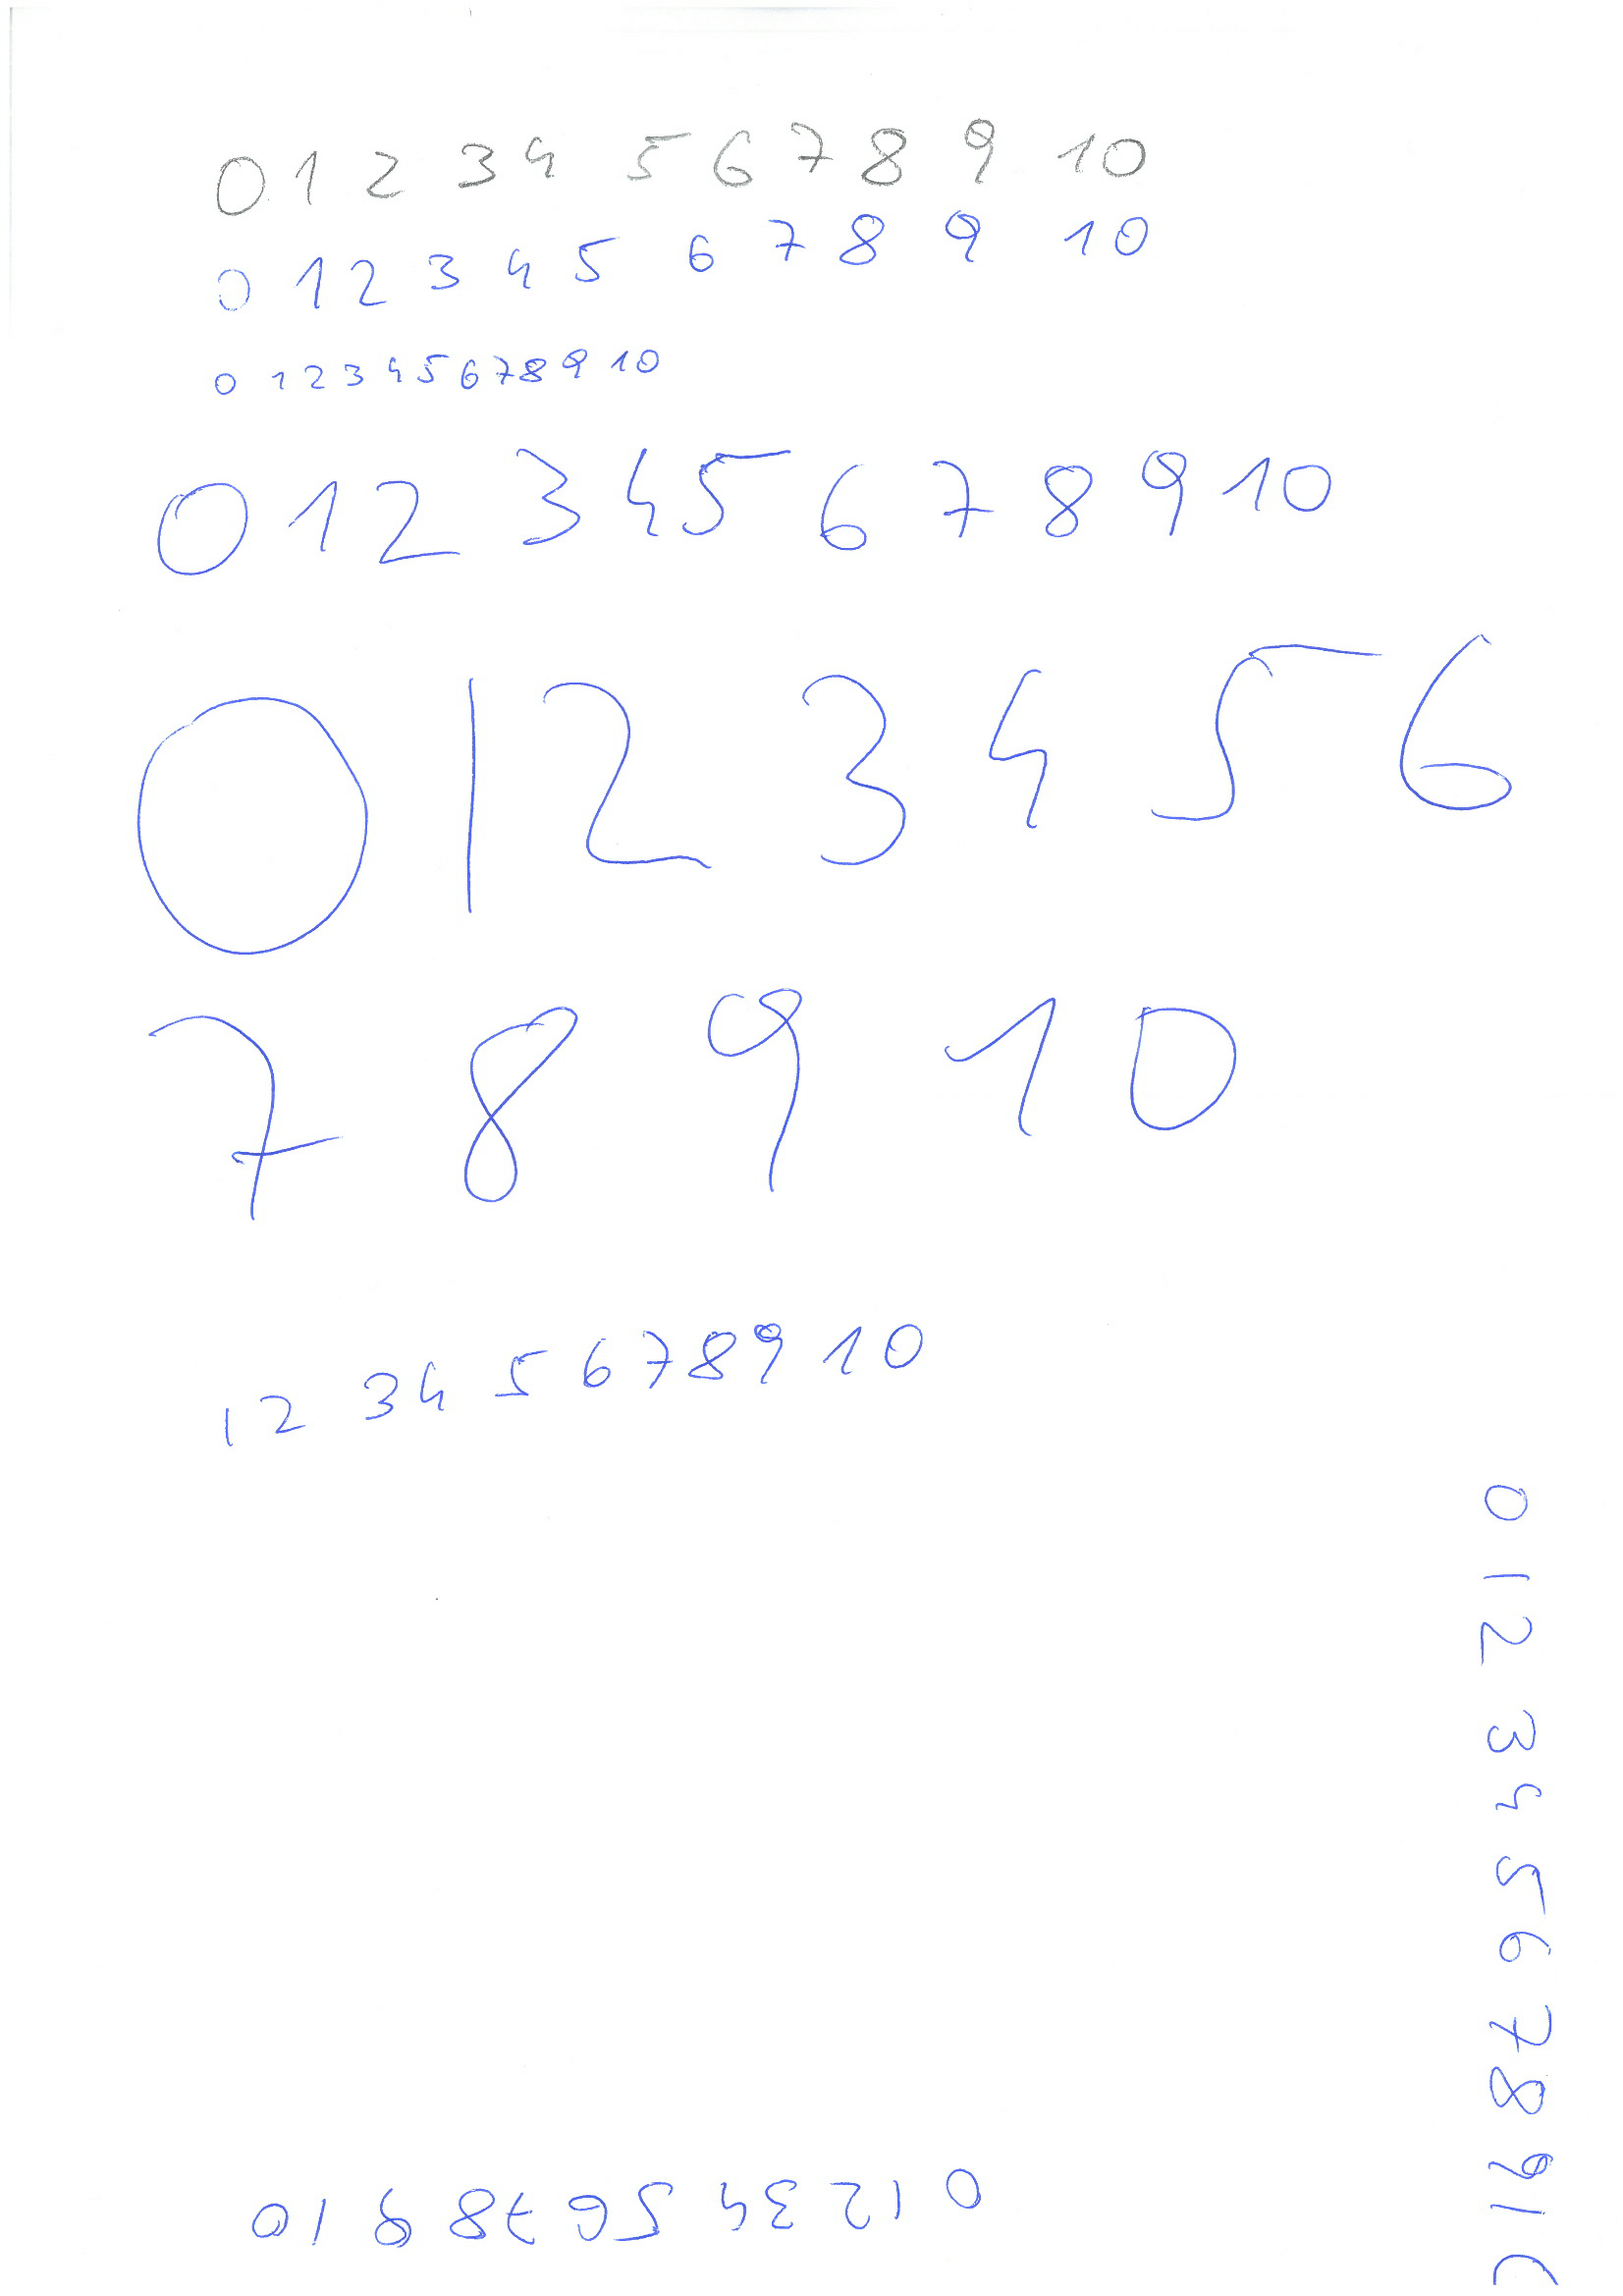 0 1 2 3 4 5 6 7 8 9 10
0 1 2 3 4 5 6 7 8 9 10
0 1 2 3 4 5 6 7 8 9 10
0 1 2 3 4 5 6 7 8 9 10
0 1 2 3 4 5 6
7 8 9 10
1 2 3 4 5 6 7 8 9 10
0 1 2 3 4 5 6 7 8 9 10
0 1 2 3 4 5 6 7 8 9 10